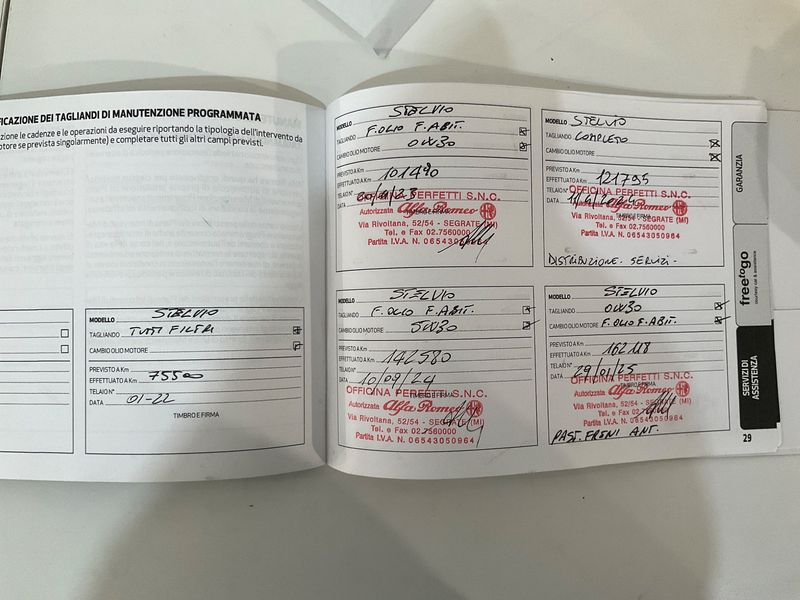 FICAZIONE DEI TAGLIANDI DI MANUTENZIONE PROGRAMMATA
zione le cadenze e le operazioni da eseguire riportando la tipologia dell'intervento da
otore se prevista singolarmente) e completare tutti gli altri campi previsti.
MODELLO STELVIO
TAGLIANDO TUTTI FILTRI
CAMBIO OLIO MOTORE
PREVISTO A Km
EFFETTUATO A Km 75500
TELAIO N°
DATA 01-22
TIMBRO E FIRMA
MODELLO STELVIO
TAGLIANDO F. OLIO F. ABIT.
CAMBIO OLIO MOTORE 0W30
PREVISTO A Km
EFFETTUATO A Km 101490
TELAIO N°
DATA
OFFICINA PERFETTI S.N.C.
Autorizzata Alfa Romeo
Via Rivoltana, 52/54 - SEGRATE (MI)
Tel. e Fax 02.7560000
Partita I.V.A. N. 06543050964
MODELLO STELVIO
TAGLIANDO COMPLETO
CAMBIO OLIO MOTORE
PREVISTO A Km
EFFETTUATO A Km 121795
TELAIO N°
DATA
OFFICINA PERFETTI S.N.C.
Autorizzata Alfa Romeo
TIMBRO E FIRMA
Via Rivoltana, 52/54 - SEGRATE (MI)
Tel. e Fax 02.7560000
Partita I.V.A. N. 06543050964
DISTRIBUZIONE. SERVIZI -
MODELLO STELVIO
TAGLIANDO F. OLIO F. ABIT.
CAMBIO OLIO MOTORE 5W30
PREVISTO A Km
EFFETTUATO A Km 142580
TELAIO N°
DATA 10/09/24
TIMBRO E FIRMA
OFFICINA PERFETTI S.N.C.
Autorizzata Alfa Romeo
Via Rivoltana, 52/54 - SEGRATE (MI)
Tel. e Fax 02.7560000
Partita I.V.A. N. 06543050964
MODELLO STELVIO
TAGLIANDO 0W30
CAMBIO OLIO MOTORE F. OLIO F. ABIT.
PREVISTO A Km
EFFETTUATO A Km 162118
TELAIO N°
DATA 29/01/25
OFFICINA PERFETTI S.N.C.
TIMBRO E FIRMA
Autorizzata Alfa Romeo
Via Rivoltana, 52/54 - SEGRATE (MI)
Tel. e Fax 02.7560000
Partita I.V.A. N. 06543050964
PAST. FRENI ANT.
GARANZIA
freetogo
SERVIZI DI
ASSISTENZA
29